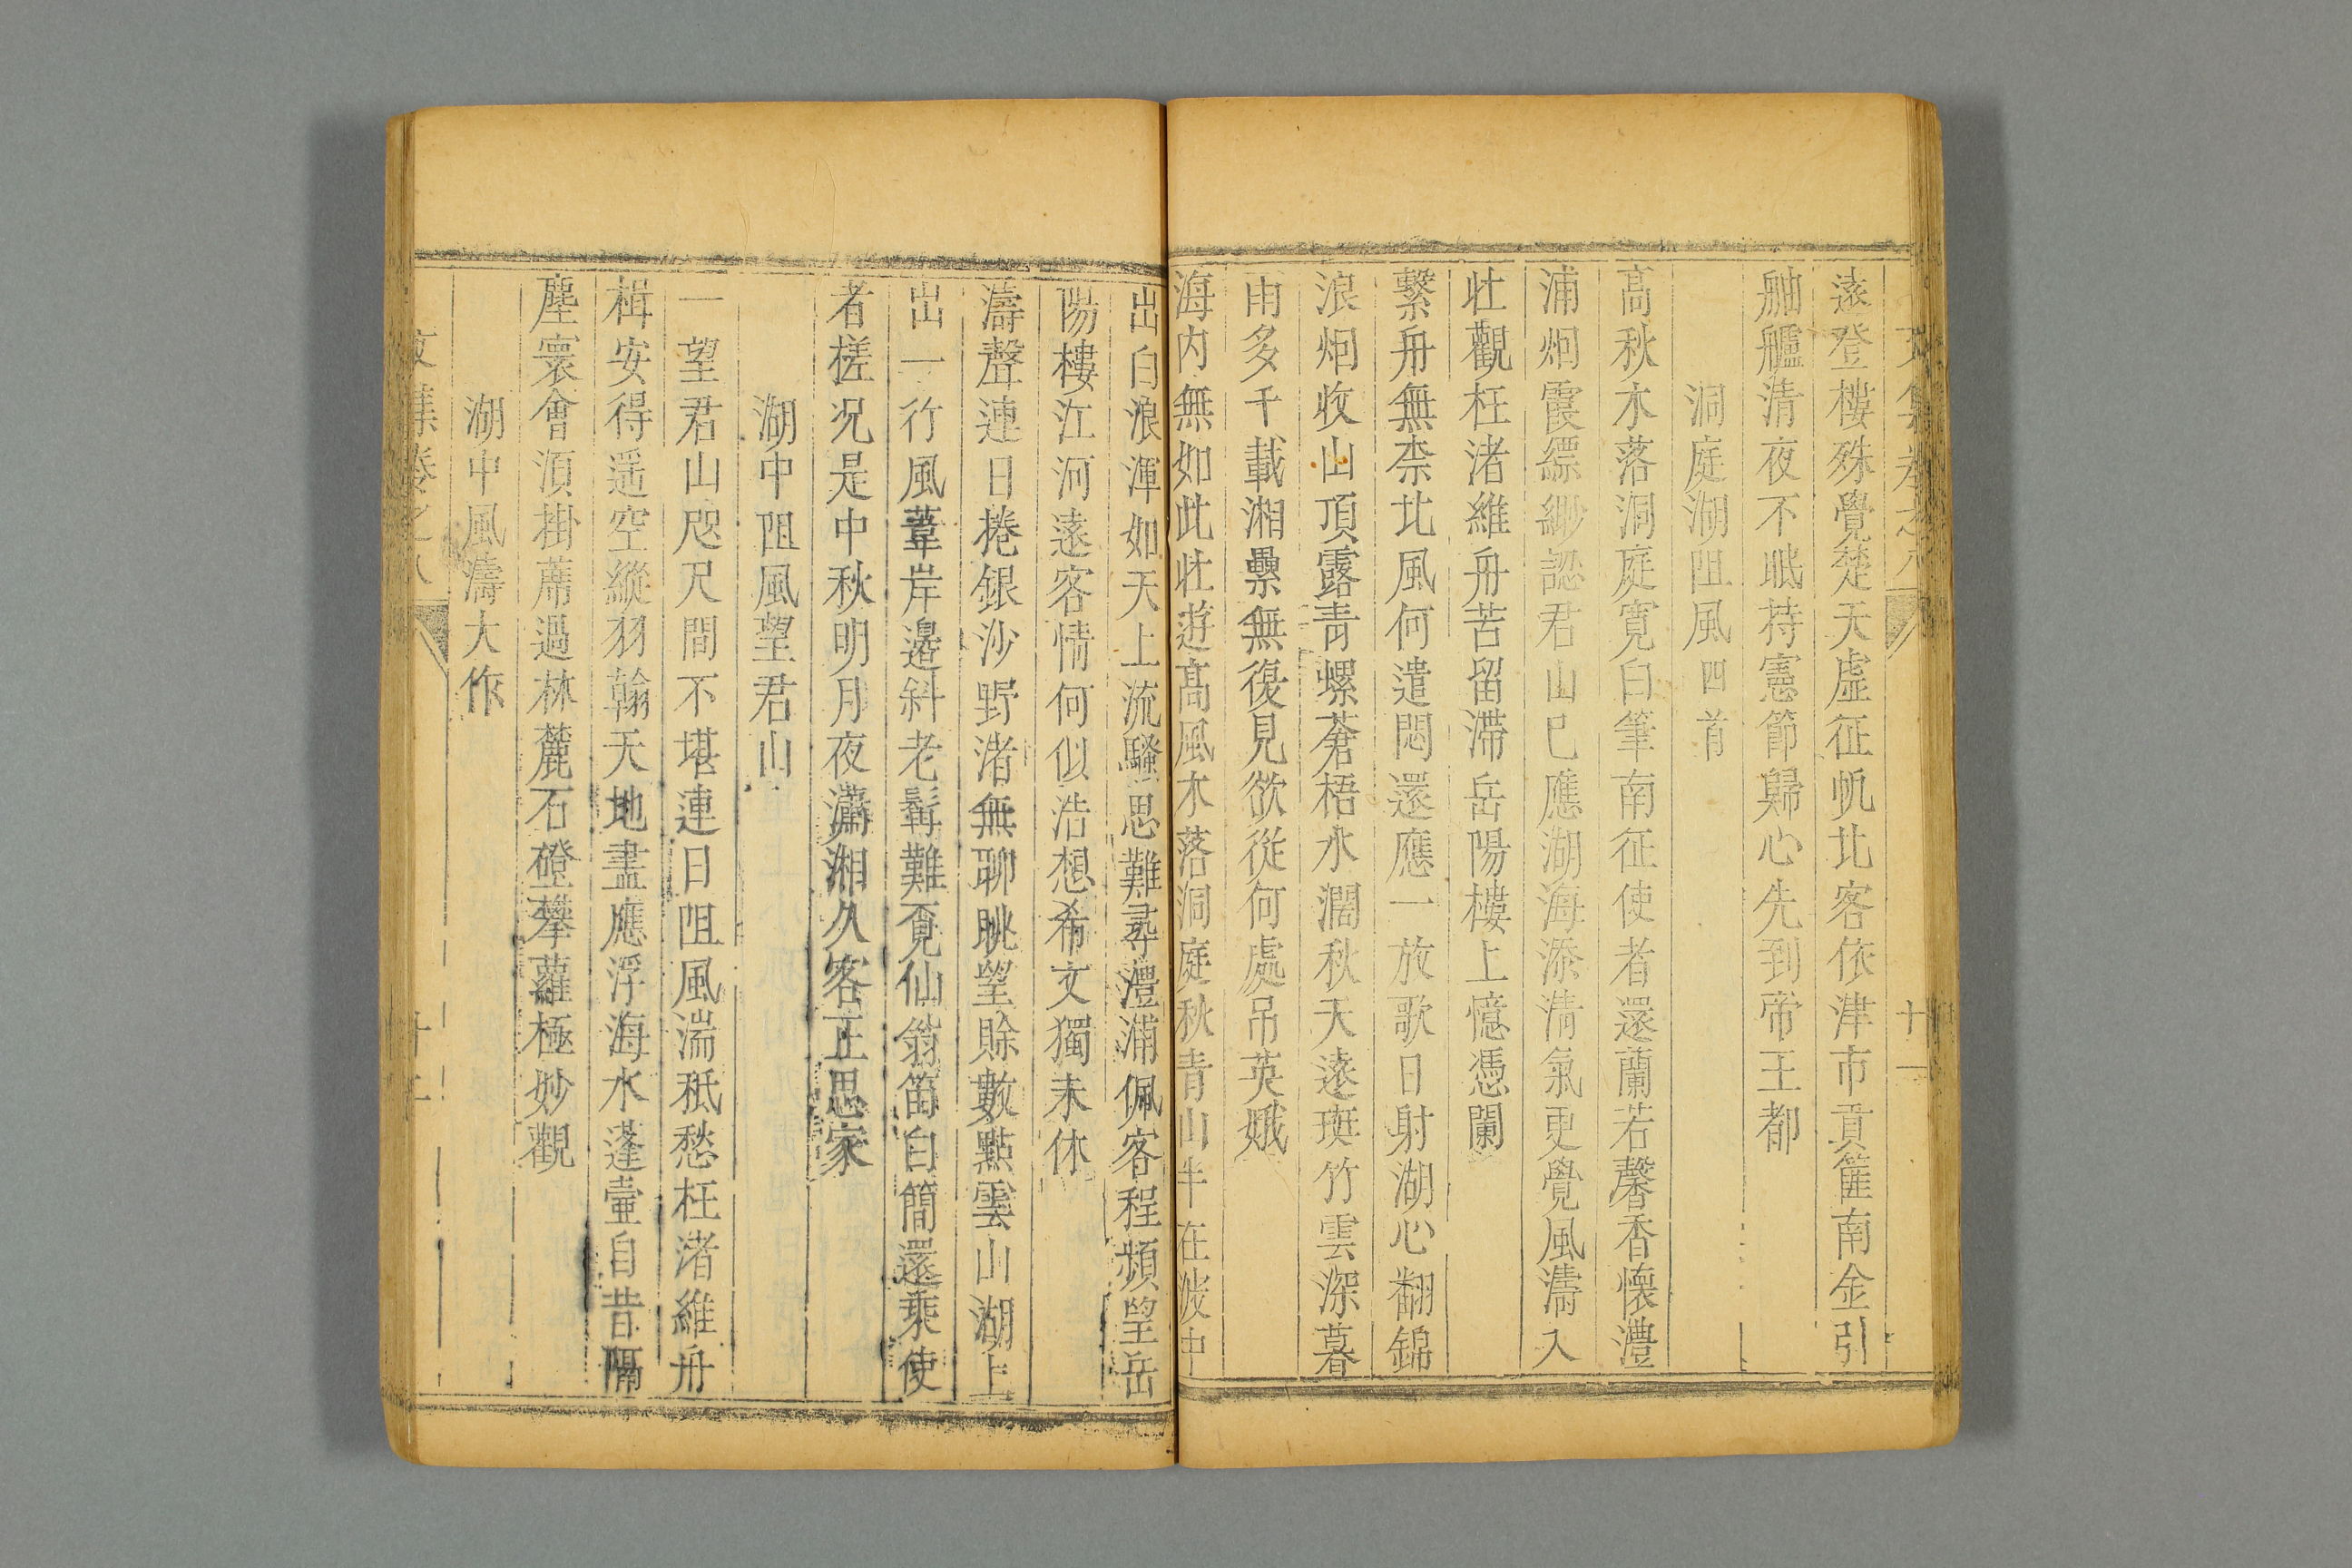 文集卷之八　十一
遠登樓殊覺楚天虛征帆北客依津市貢篚南金引
舳艫清夜不眠持憲節歸心先到帝王都
洞庭湖阻風四首
高秋木落洞庭寬白筆南征使者還蘭若馨香懷澧
浦烟霞縹緲認君山已應湖海添清氣更覺風濤入
壯觀枉渚維舟苦留滯岳陽樓上憶憑闌
繫舟無柰北風何遣悶還應一放歌日射湖心翻錦
浪烟收山頂露青螺蒼梧水濶秋天遠斑竹雲深暮
雨多千載湘纍無復見欲從何處吊英娥
海内無如此壯遊高風木落洞庭秋青山半在波中
出白浪渾如天上流騷思難尋澧浦佩客程頻望岳
陽樓江河遠客情何似浩想希文獨未休
濤聲連日捲銀沙野渚無聊眺望賒數點雲山湖上
出一行風葦岸邊斜老髯難覓仙翁笛白簡還乘使
者槎况是中秋明月夜瀟湘久客正思家
湖中阻風望君山
一望君山咫尺間不堪連日阻風湍秖愁枉渚維舟
楫安得遥空縱羽翰天地盡應浮海水蓬壷自昔隔
塵寰會湏掛蓆過林麓石磴攀蘿極妙觀
湖中風濤大作
文集卷之八　十二